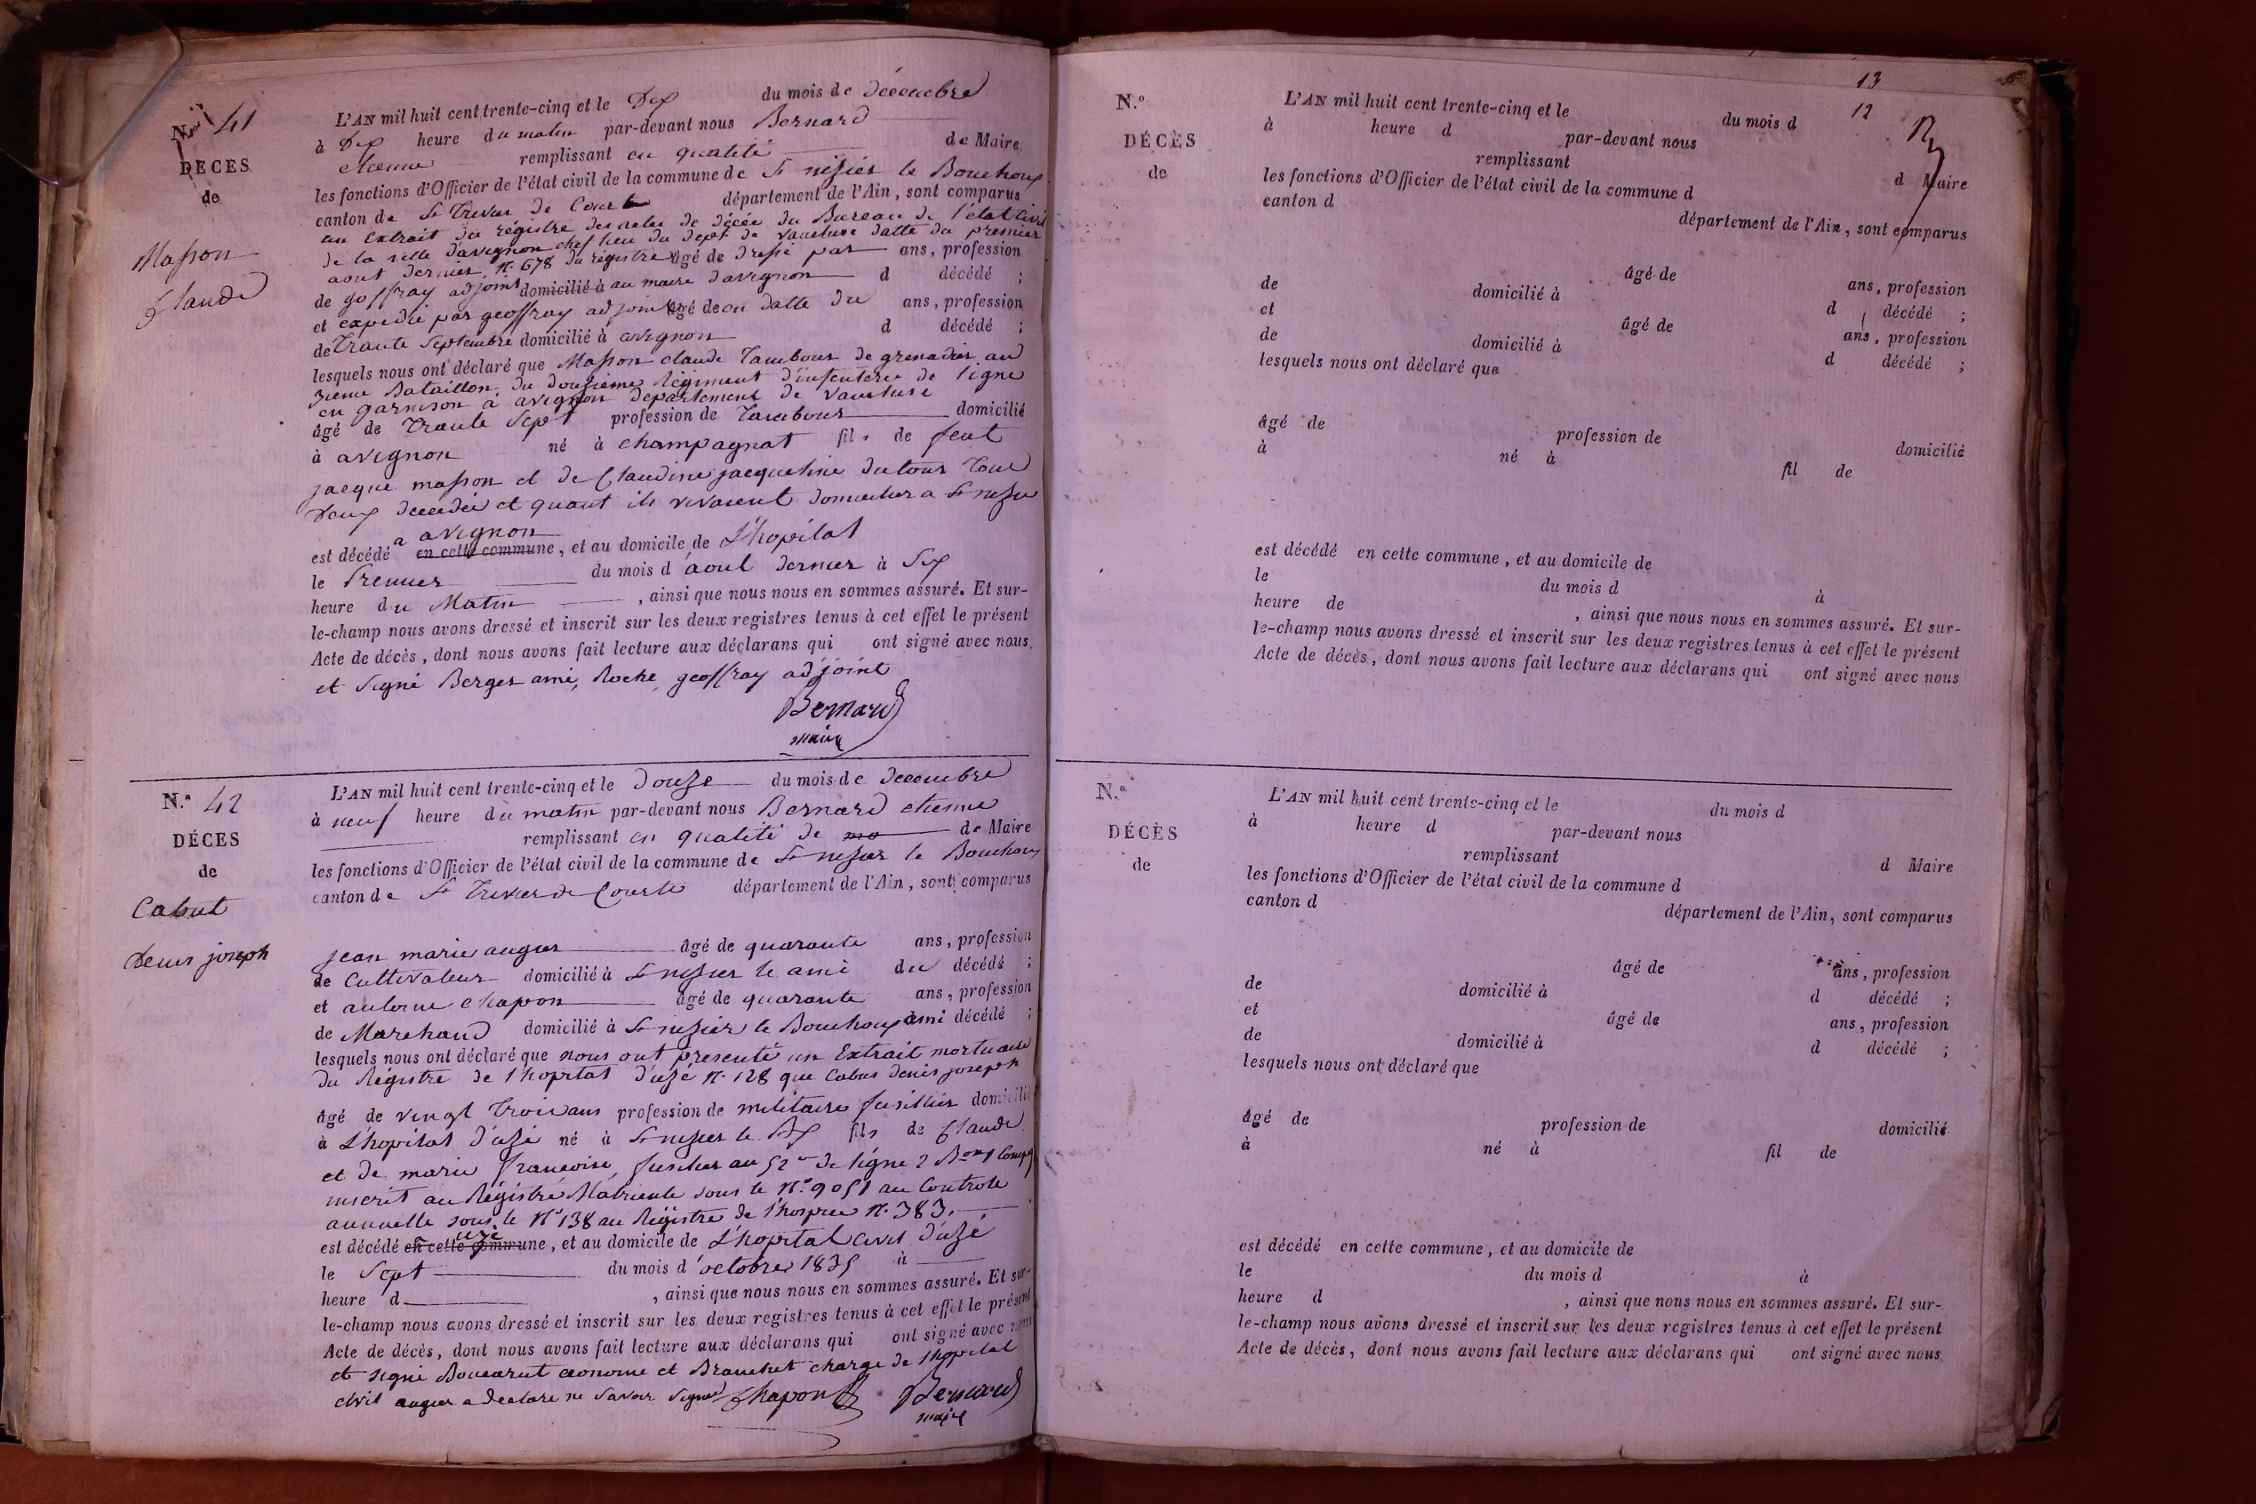 N.° 41
DÉCES
de
Masson
Claude
L'AN mil huit cent trente-cinq et le Dix du mois de décembre
à Dix heure du matin par-devant nous Bernard
etienne remplissant en qualité de Maire
les fonctions d'Officier de l'état civil de la commune de St nizier le Bouchoux
canton de St Trivier de Courte département de l'Ain, sont comparus
un Extrait du régistre des actes de décée du Bureau de l'état civil
de la ville d'avignon chef lieu du dept de vaucluse datte du premier
aout dernier N.° 678 du régistre âgé de dressé par ans, profession
de goffray adjoint domicilié à au maire d'avignon d décédé ;
et expedié par geoffray adjoint âgé de en datte du ans, profession
de Trante Septembre domicilié à avignon d décédé ;
lesquels nous ont déclaré que Masson claude Tambour de grenadier au
3ieme Bataillon du douzieme Régiment d'infenterie de ligne
en garnison à avignon departement de vaucluse
âgé de Trante Sept profession de Tambour domicilié
à avignon né à champagnat fils de feut
jacque masson et de Claudine jacqueline dutour Tous
Deux décedée et quant ils vivaient domicilier a St nizier
a avignon
est décédé en cette commune, et au domicile de L'hopital
le Premier du mois d'aout dernier à Six
heure du Matin , ainsi que nous nous en sommes assuré. Et sur-
le-champ nous avons dressé et inscrit sur les deux registres tenus à cet effet le présent
Acte de décès, dont nous avons fait lecture aux déclarans qui ont signé avec nous.
et Signé Berger amé, Roche, geoffray adjoint
Bernard
maire
N.° 42
DÉCES
de
Cabut
Denis joseph
L'AN mil huit cent trente-cinq et le Douze du mois de décembre
à neuf heure du matin par-devant nous Bernard etienne
remplissant en qualité de ma de Maire
les fonctions d'Officier de l'état civil de la commune de St nizier le Bouchoux
canton de St Trivier de Courte département de l'Ain, sont comparus
jean marie augier âgé de quarante ans, profession
de Cultivateur domicilié à St nizier le ami du décédé ;
et antoine chapon âgé de quarante ans, profession
de Marchand domicilié à St nizier le Bouchoux ami décédé ;
lesquels nous ont déclaré que nous ont presenté un Extrait mortuaire
du Régistre de l'hopital d'uzé N.° 128 que Cabut denis joseph
âgé de vingt Trois ans profession de militaire fusillier domicilié
à L'hopital d'uzé né à St nizier le Bx fils de Claude
et de marie francoise, fusilier au 52me de ligne 2 Bon 1 Compg
inscrit au Régistre Matricule sous le N.° 9051 au Controle
annuelle sous le N° 138 au Régistre de l'hospice N.° 383.
uzé
est décédé en cette commune, et au domicile de L'hopital civil d'uzé
le Sept du mois d'octobre 1835 à
heure d , ainsi que nous nous en sommes assuré. Et sur-
le-champ nous avons dressé et inscrit sur les deux registres tenus à cet effet le présent
Acte de décès, dont nous avons fait lecture aux déclarans qui ont signé avec nous
et signé Boucarut œconome et Branchet charge de l'hopital
civil augier a declaré ne savoir signer Chapon Bernard
maire
13
12
N.°
DÉCÈS
de
L'AN mil huit cent trente-cinq et le du mois d
à heure d par-devant nous
remplissant d Maire
les fonctions d'Officier de l'état civil de la commune d
canton d département de l'Ain, sont comparus
âgé de ans, profession
de domicilié à d décédé ;
et âgé de ans, profession
de domicilié à d décédé ;
lesquels nous ont déclaré que
âgé de profession de domicilié
à né à fil de
est décédé en cette commune, et au domicile de
le du mois d à
heure de , ainsi que nous nous en sommes assuré. Et sur-
le-champ nous avons dressé et inscrit sur les deux registres tenus à cet effet le présent
Acte de décès, dont nous avons fait lecture aux déclarans qui ont signé avec nous
N.°
DÉCÈS
de
L'AN mil huit cent trente-cinq et le du mois d
à heure d par-devant nous
remplissant d Maire
les fonctions d'Officier de l'état civil de la commune d
canton d département de l'Ain, sont comparus
âgé de ans, profession
de domicilié à d décédé ;
et âgé de ans, profession
de domicilié à d décédé ;
lesquels nous ont déclaré que
âgé de profession de domicilié
à né à fil de
est décédé en cette commune, et au domicile de
le du mois d à
heure d , ainsi que nous nous en sommes assuré. Et sur-
le-champ nous avons dressé et inscrit sur les deux registres tenus à cet effet le présent
Acte de décès, dont nous avons fait lecture aux déclarans qui ont signé avec nous.